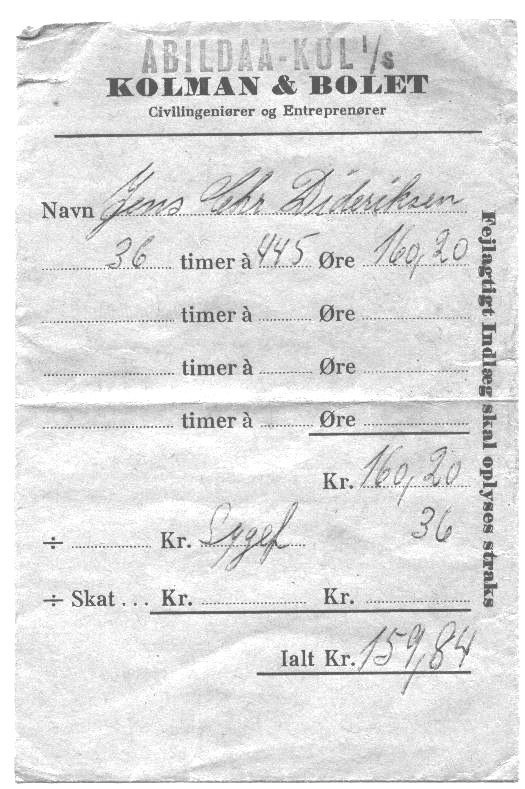 ABILDAA-KUL I/S
KOLMAN & BOLET
Civilingeniører og Entreprenører
Navn Jens Chr Dideriksen
36 timer à 445 Øre 160,20
timer à Øre
timer à Øre
timer à Øre
Kr. 160,20
÷ Kr. Sygef 36
÷ Skat ... Kr. Kr.
Ialt Kr. 159,84
Fejlagtigt Indlæg skal oplyses straks